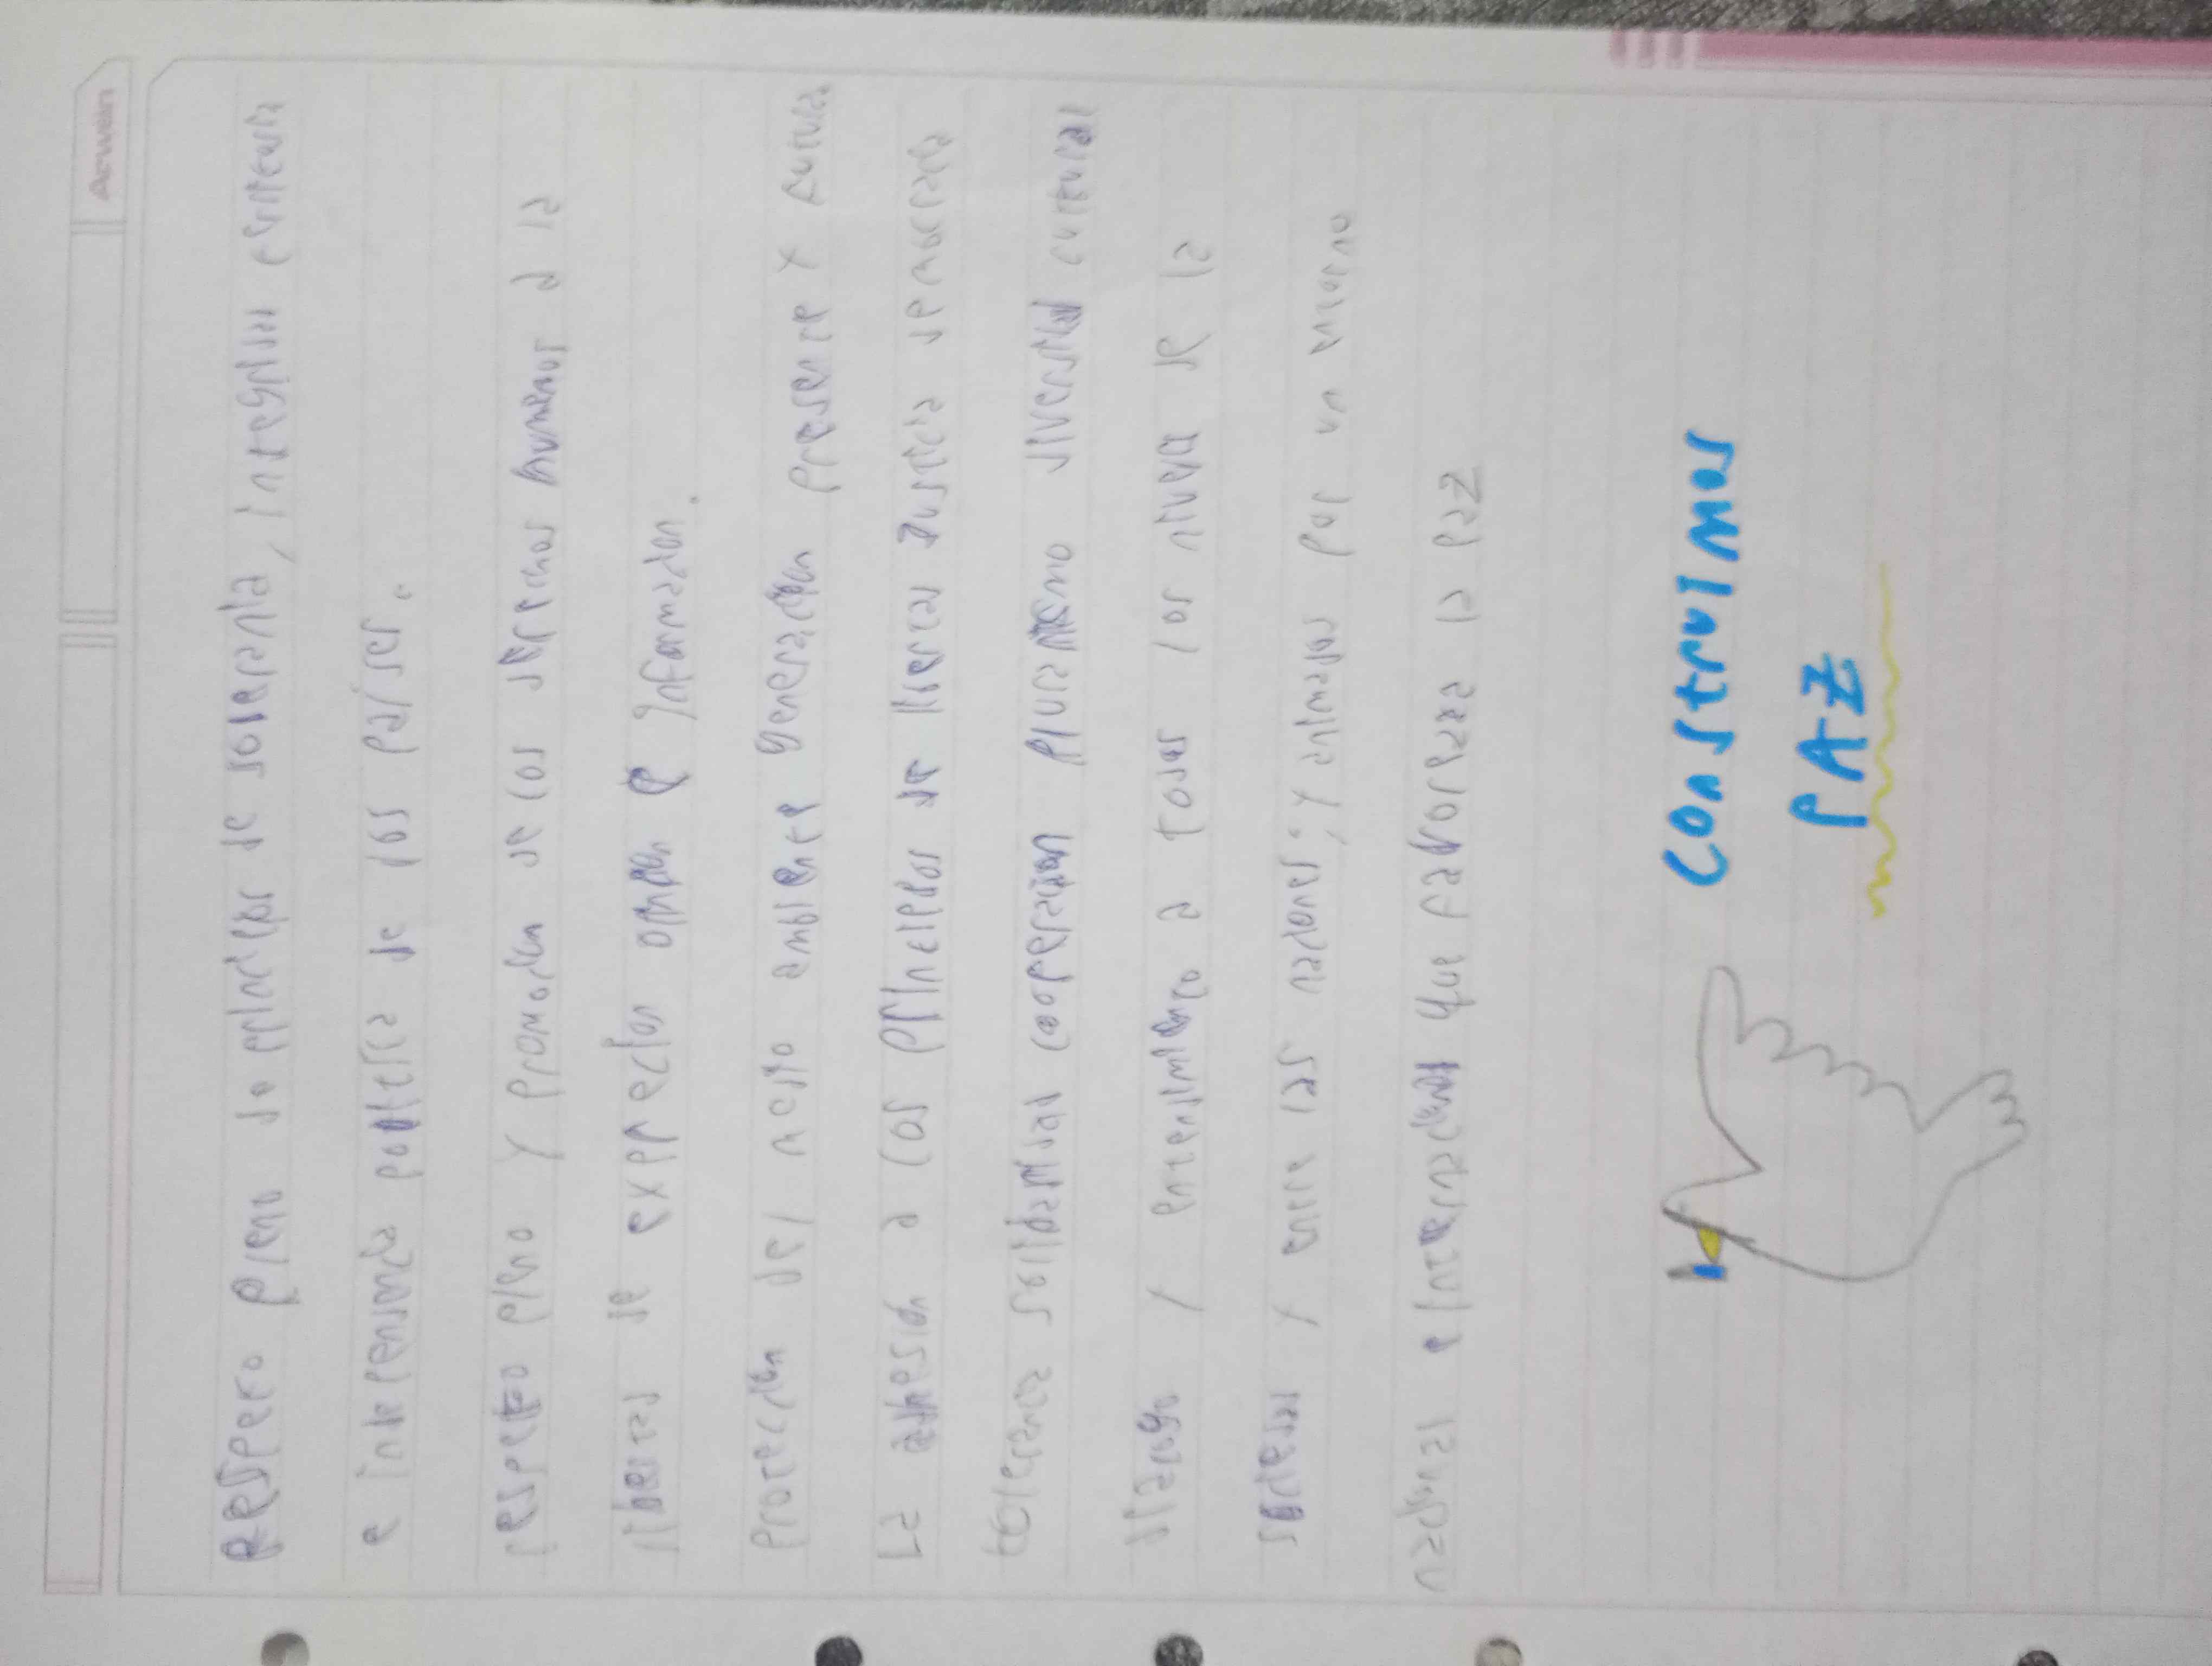 Acuwin
Respeto pleno de principios de soberania, integridad
e independencia politica de los paises.
respeto pleno y promoción de los derechos humanos a la
libertad de expresion opinión e información.
protección del medio ambiente generación presente y futura
La adhesión a los principios de libertad justicia democracia
tolerancia solidaridad cooperacion pluralismo diversidad cultural
dialogo y entendimiento a todos los niveles de la
sociedad y entre las naciones; y animados por un entorno
nacional e internacional que favorezca la paz
Construimos
PAZ